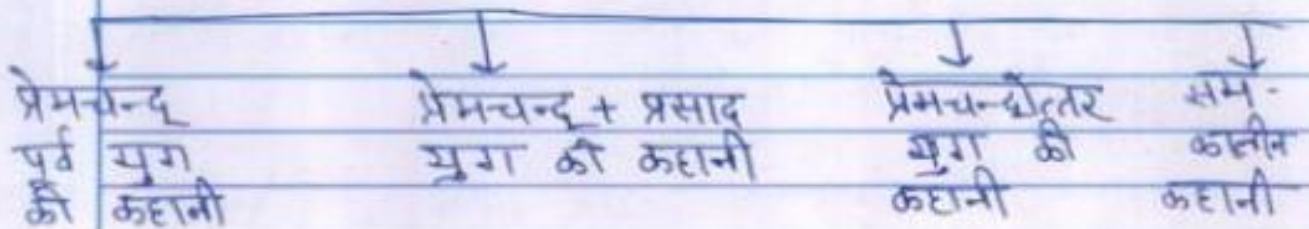 प्रेमचन्द
पूर्व युग
की कहानी
प्रेमचन्द + प्रसाद
युग की कहानी
प्रेमचन्दोत्तर
युग की
कहानी
सम-
कालीन
कहानी